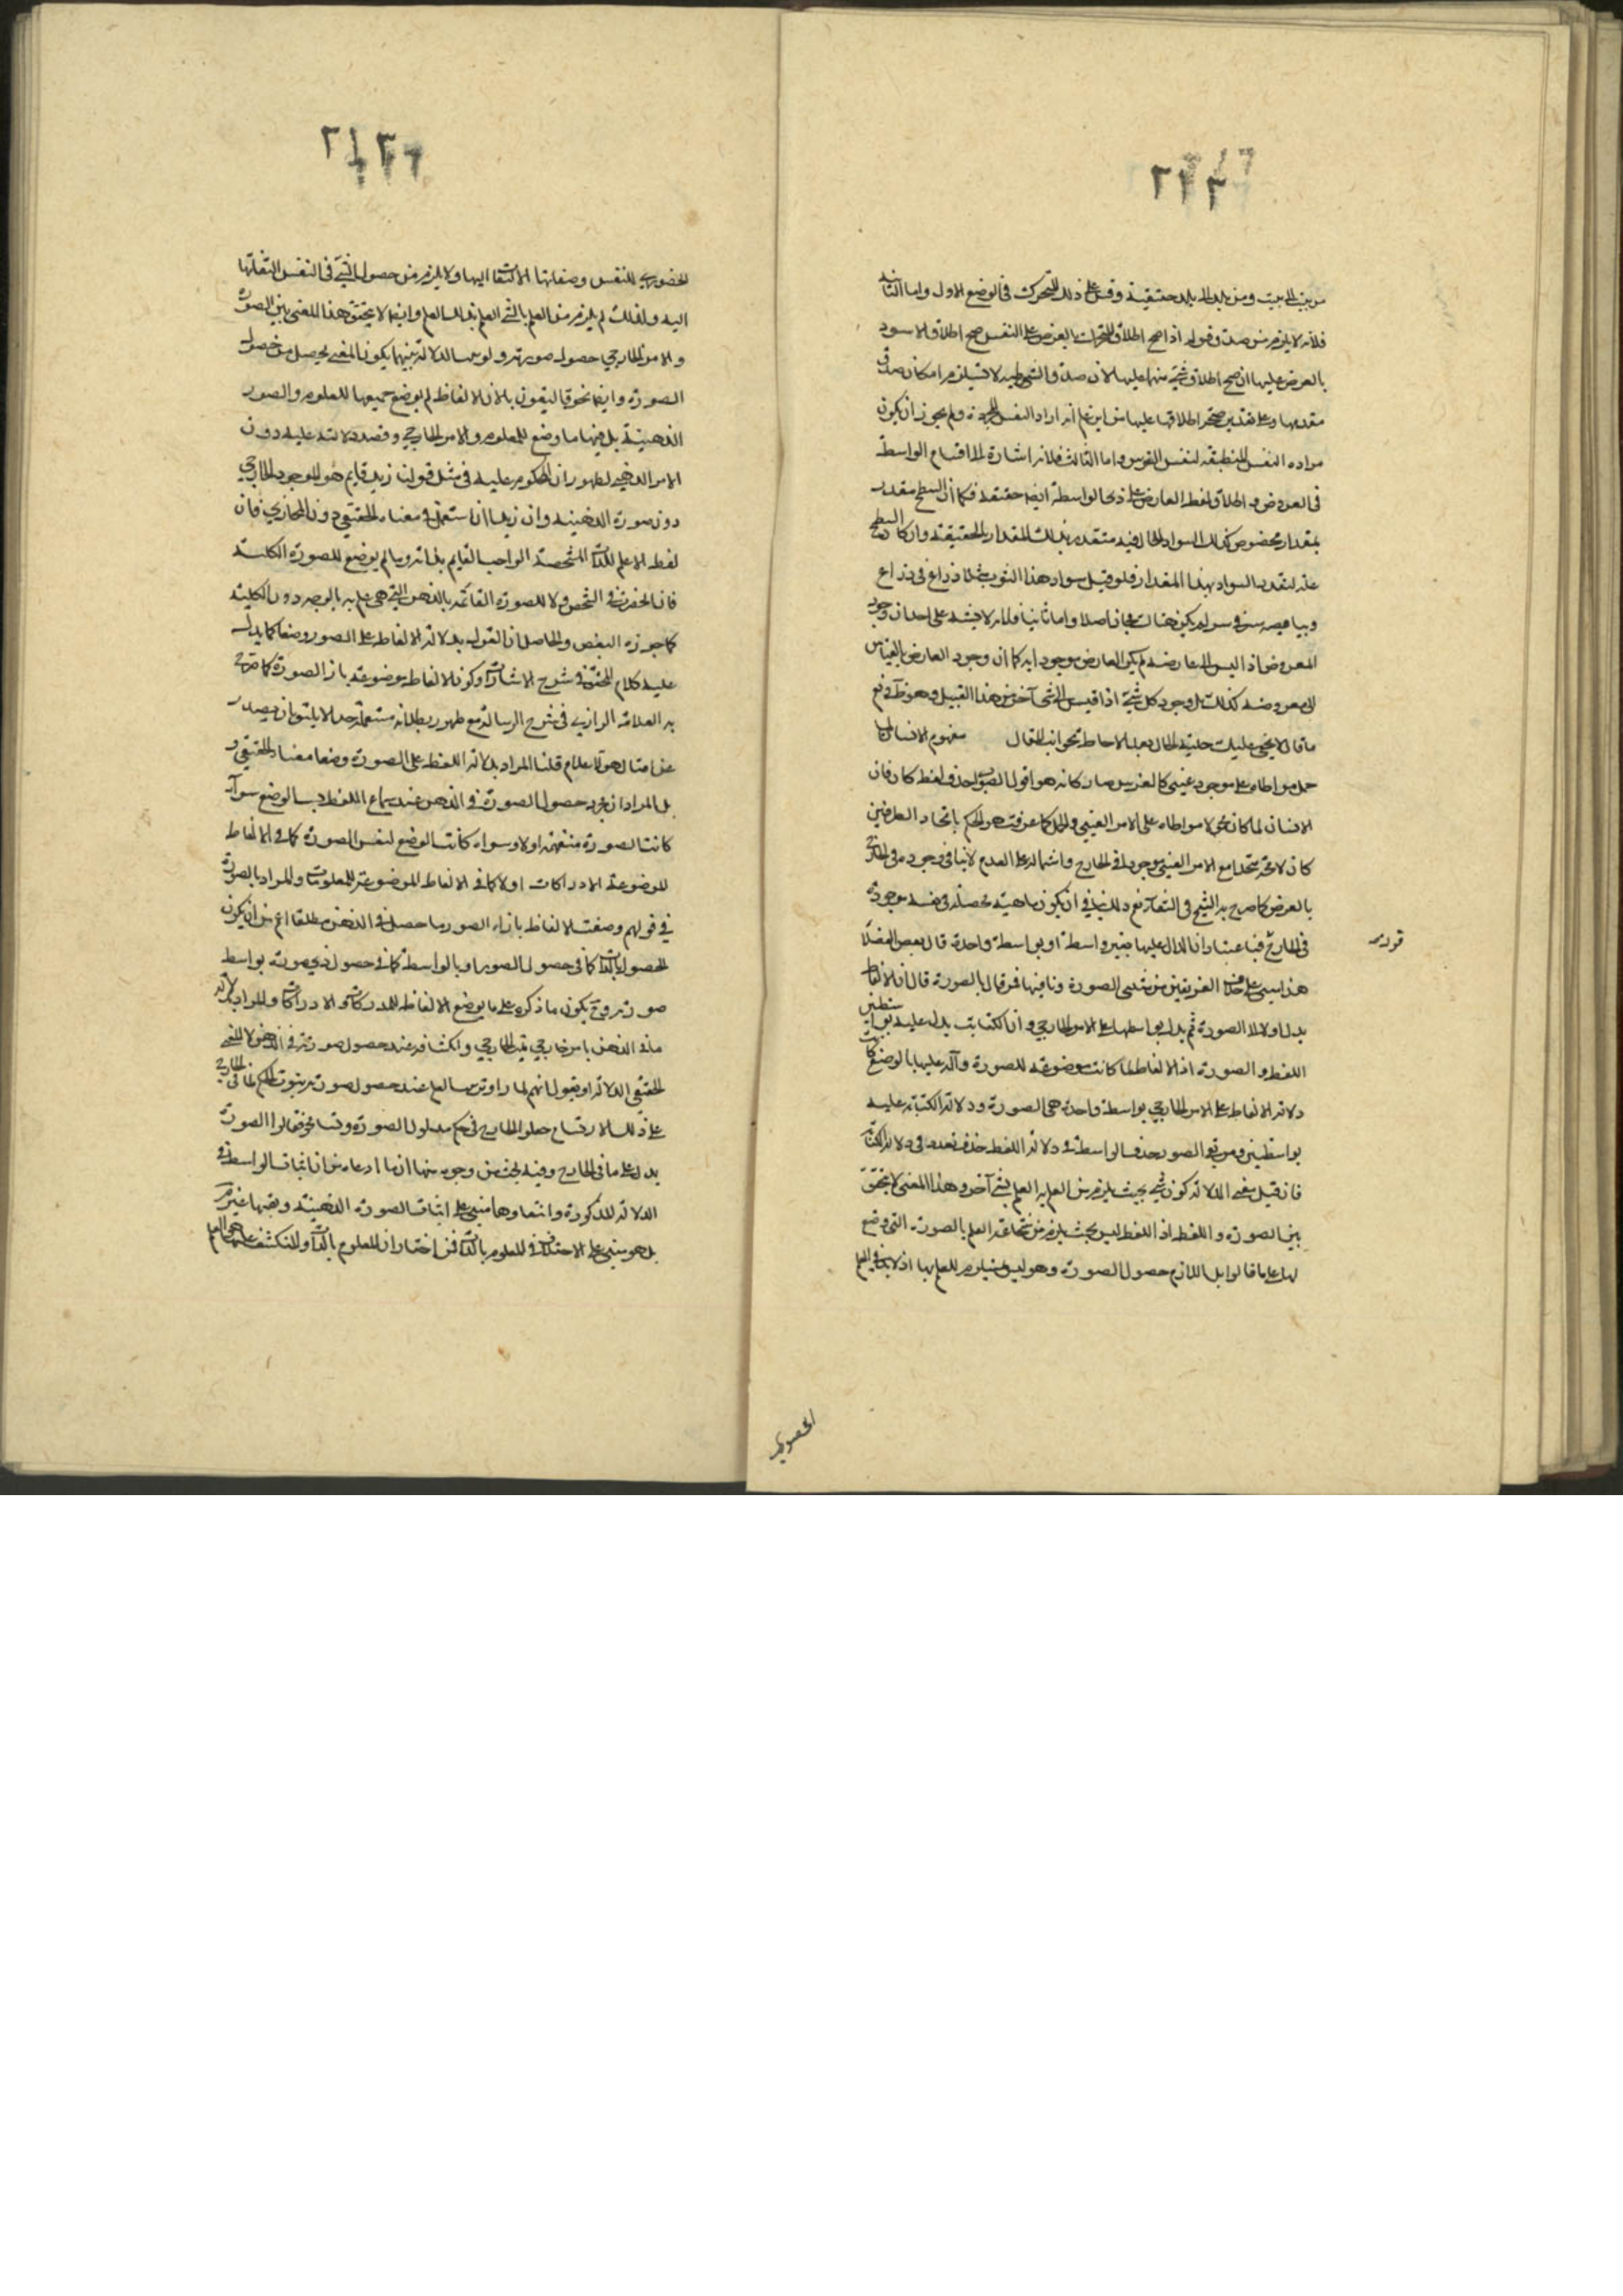 من بيت الى بيت ومن بلد الى بلد حقيقة وقس على ذلك المتحرك فى الوضع الاول واما الثانى
فلانه لا يلزم من صدق قوله اذا صح اطلاق المتحرك بالعرض على النفس صح اطلاق الاسود
بالعرض عليها ان صح اطلاق شئ منهما عليها لان صدق الشرطية لا يستلزم امكان صدق
مقدمها وعلى تقدير صحة اطلاقها عليها من اين علم انه اراد النفس المجردة ولم يجوز ان يكون
مراده النفس المنطبقة لنفس الفرس واما الثالث فلانه اشارة الى اقسام الواسطة
فى العروض واطلاق لفظ العارض على ذى الواسطة ايضا حقيقة فكما ان السطح مقدر
بمقدار مخصوص كذلك السواد الحال فيه متقدر بذلك المقدار بالحقيقة وان كان تقدر السطح
علة لتقدر السواد بهذا المقدار فلو قيل سواد هذا الثوب مثلا ذراع فى ذراع
وبياضه شبر فى شبر لم يكن هناك مجاز اصلا واما ثانيا فلانه لا يشتبه على احد ان وجود
المعروض اذا ليس الى عارضه لم يكن العارض موجودا به كما ان وجود العارض بالقياس
الى معروضه كذلك بل وجود كل شئ اذا قيس الى شئ آخر من هذا القبيل وهو ظاهر فدفع
ما قال لا يخفى عليك حلية الحال بعد الاحاطة بجوانب المقال مفهوم الانسان لما
حمل مواطاة على موجود عينى كالفرس صار كانه هو اقول الصواب حذف لفظ كان فان
الانسان لما كان محمولا مواطاة على الامر العينى والحمل كما عرفت هو الحكم باتحاد الطرفين
كان لا محة متحدا مع الامر العينى موجودا فى الخارج واشتماله على العدم لا ينافى وجوده فى الخارج
بالعرض كما صرح به الشيخ فى الشفاء نعم ذلك ينافى ان يكون ماهية محصلة فى نفسه موجودة
فى الخارج فباعتبار ان الدال عليها بغير واسطة او بواسطة واحدة قال بعض الفضلاء
قوله
هذا مبنى على خلاف الفريقين من مثبتى الصورة ونافيها فمن قال بالصورة قال ان الالفاظ
يدل اولا على الصورة ثم يدل بواسطتها على الامر الخارجى وان الكتابة يدل عليه بواسطتين
اللفظ والصورة اذ الالفاظ لما كانت موضوعة للصورة ودالة عليها بالوضع كانت
دلالة الالفاظ على الامر الخارجى بواسطة واحدة هى الصورة ودلالة الكتابة عليه
بواسطتين ومن نفى الصورة حذف الواسطة فى دلالة اللفظ حذف تعدده فى دلالة الكتابة
فان قيل معنى الدلالة كون شئ بحيث يلزم من العلم به العلم بشئ آخر وهذا المعنى لا يتحقق
بين الصورة واللفظ اذ اللفظ ليس بحيث يلزم من سماعه العلم بالصورة التى وضع
لها على ما قالوا بل اللازم حصول الصورة وهو ليس بمستلزم للعلم بها اذ لا بد فى العلم
الحضورى
الحضورى للنفس وصفاتها الالتفات اليها ولا يلزم من حصول الشئ فى النفس التفاتها
اليه ولذلك لم يلزم من العلم بالشئ العلم بذلك العلم وايضا لا يتحقق هذا المعنى بين الصورة
والامر الخارجى حصول صورته ولو سلم الدلالة بينهما يكون المعنى يحصل من حصول
الصورة وايضا نحن قائلون بان الالفاظ لم يوضع جميعها للمعلوم والصور
الذهنية بل منها ما وضع للمعلوم والامر الخارجى وقصد دلالته عليه دون
الامر الذهنى لظهور ان المحكوم عليه فى مثل قولنا زيد قايم هو الموجود الخارجى
دون صورة الذهنية وان زيدا استعمل فى معناه الحقيقى دون المجازى فان
لفظ الله علم للذات المشخصة الواجب القايم بذاته وما لم يوضع للصورة الكلية
فان الحصر فى الشخص ولا للصورة القائمة بالذهن التى هى علم به بالوجه دون الكلية
كما جوزه البعض والحاصل ان القول بدلالة الالفاظ على الصور وضعا كما يدل
عليه كلام المحقق فى شرح الاشارات وكون الالفاظ موضوعة بازاء الصورة كما صرح
به العلامة الرازى فى شرح الرسالة مع ظهور بطلانه مستبعد جدا لا يليق ان يصدر
عن امثال هؤلاء الاعلام قلنا المراد بدلالة اللفظ على الصورة وضعا معناه الحقيقى
بل المراد ان مجرد حصول الصورة فى الذهن عند سماع اللفظ بسبب الوضع سواء
كانت الصورة متفهمة اولا وسواء كانت الوضع لنفس الصورة كما فى الالفاظ
الموضوعة للادراكات او لا كما فى الالفاظ الموضوعة للمعلومات والمراد بالصورة
فى قولهم وضعت الالفاظ بازاء الصور ما حصل فى الذهن مطلقا اعم من ان يكون
الحصول بالذات كما فى حصول الصور او بالواسطة كما فى حصول ذى صورة بواسطة
صورته وح يكون ما ذكره على ما يوضع الالفاظ للمدركات والادراكات والمراد بدلالة
ما فى الذهن باسم خارجى تميز الخارجى وانكشافه عند حصول صورته فى الذهن لا المعنى
الحقيقى الدلالة او نقول انهم لما راوا ترتب العلم عند حصول صورته بثبوت الحكم لما فى الخارج
على ذلك الارتسام جعلوا الخارجى فى حكم مدلول الصورة وتسامحوا فقالوا الصورة
يدل على ما فى الخارج وفيه بحث من وجوه منها ان ما ادعاه من ان اثبات الواسطة فى
الدلالة المذكورة وانتفاءها مبنى على اثبات الصورة الذهنية ونفيها غير مم
بل هو مبنى على الاختلاف فى المعلوم بالذات فمن اختار ان المعلوم بالذات والمنكشف على ما هو العلم